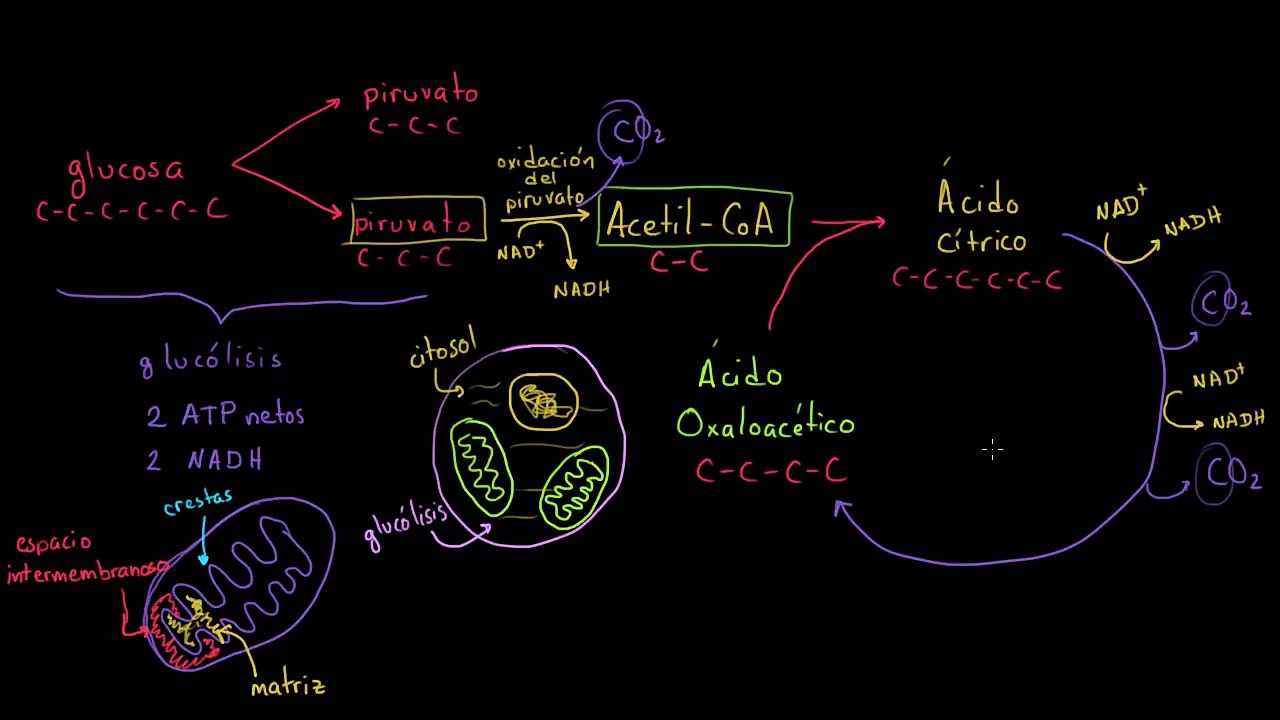 piruvato
C-C-C
glucosa
C-C-C-C-C-C
piruvato
C-C-C
oxidación
del
piruvato
NAD+
NADH
CO2
Acetil-CoA
C-C
Ácido
cítrico
C-C-C-C-C-C
NAD+
NADH
CO2
NAD+
NADH
CO2
Ácido
Oxaloacético
C-C-C-C
glucólisis
2 ATP netos
2 NADH
citosol
glucólisis
crestas
espacio
intermembranoso
matriz